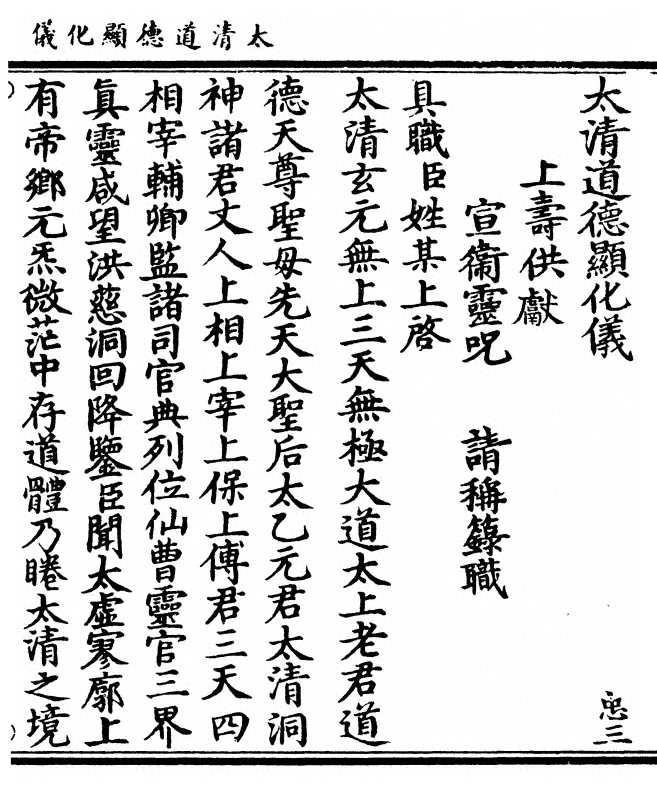 太清道德顯化儀
太清道德顯化儀
上壽供獻
宣衞靈呪　請稱籙職
具職臣姓某上啓
太清玄元無上三天無極大道太上老君道
德天尊聖母先天大聖后太乙元君太清洞
神諸君丈人上相上宰上保上傅君三天四
相宰輔卿監諸司官典列位仙曹靈官三界
眞靈咸望洪慈洞回降鑒臣聞太虛寥廓上
有帝鄉元炁微茫中存道體乃睠太清之境
三